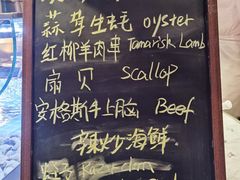 蒜蓉生蚝 oyster
红柳羊肉串 Tamarisk Lamb
扇贝 scallop
安格斯牛上脑 Beef
辣炒海鲜
Razor clam